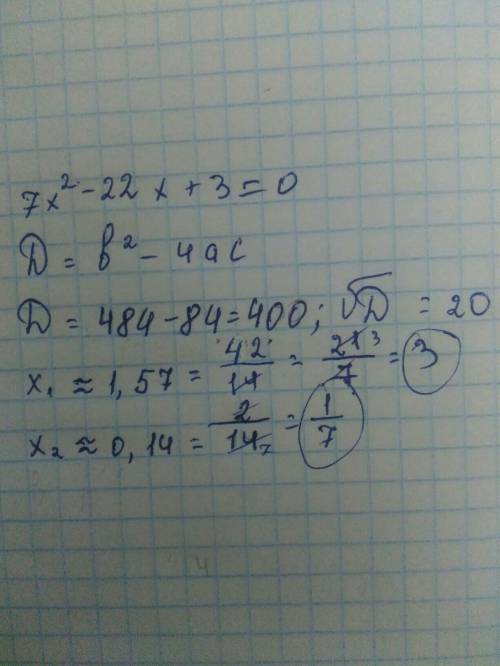 7x² - 22x + 3 = 0
D = b² - 4ac
D = 484 - 84 = 400; √D = 20
x₁ ≈ 1,57 = 42/14 = 21/7 = 3
x₂ ≈ 0,14 = 2/14 = 1/7